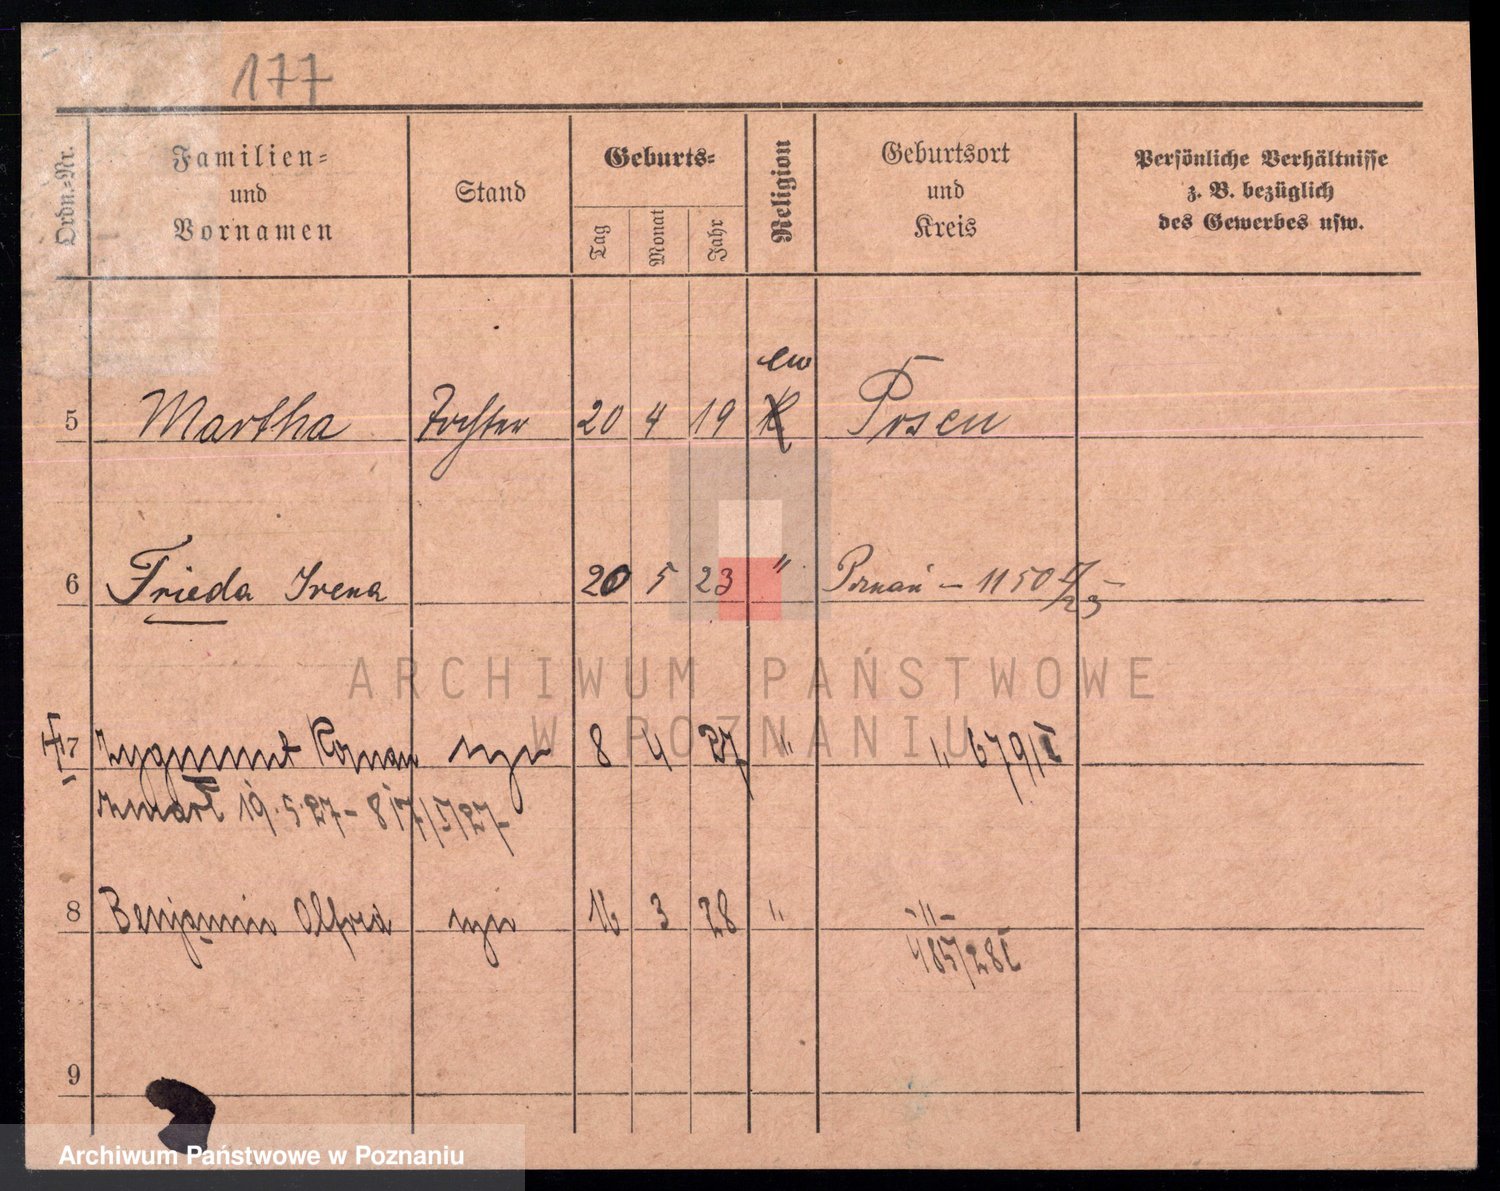 177
Ordn.-Nr.
Familien-
und
Vornamen
Stand
Geburts-
Tag
Monat
Jahr
Religion
Geburtsort
und
Kreis
Persönliche Verhältnisse
z. B. bezüglich
des Gewerbes usw.
ew
5 Martha Tochter 20 4 19 K Posen
6 Frieda Irena 20 5 23 " Poznań - 1150 /23
7 Zygmunt Roman syn 8 4 27 " " 679/I
zmarł 19.5.27 - 817/I/27
8 Benjamin Alfred syn 16 3 28 " -"-
485/28 I
9
ARCHIWUM PAŃSTWOWE
W POZNANIU
Archiwum Państwowe w Poznaniu